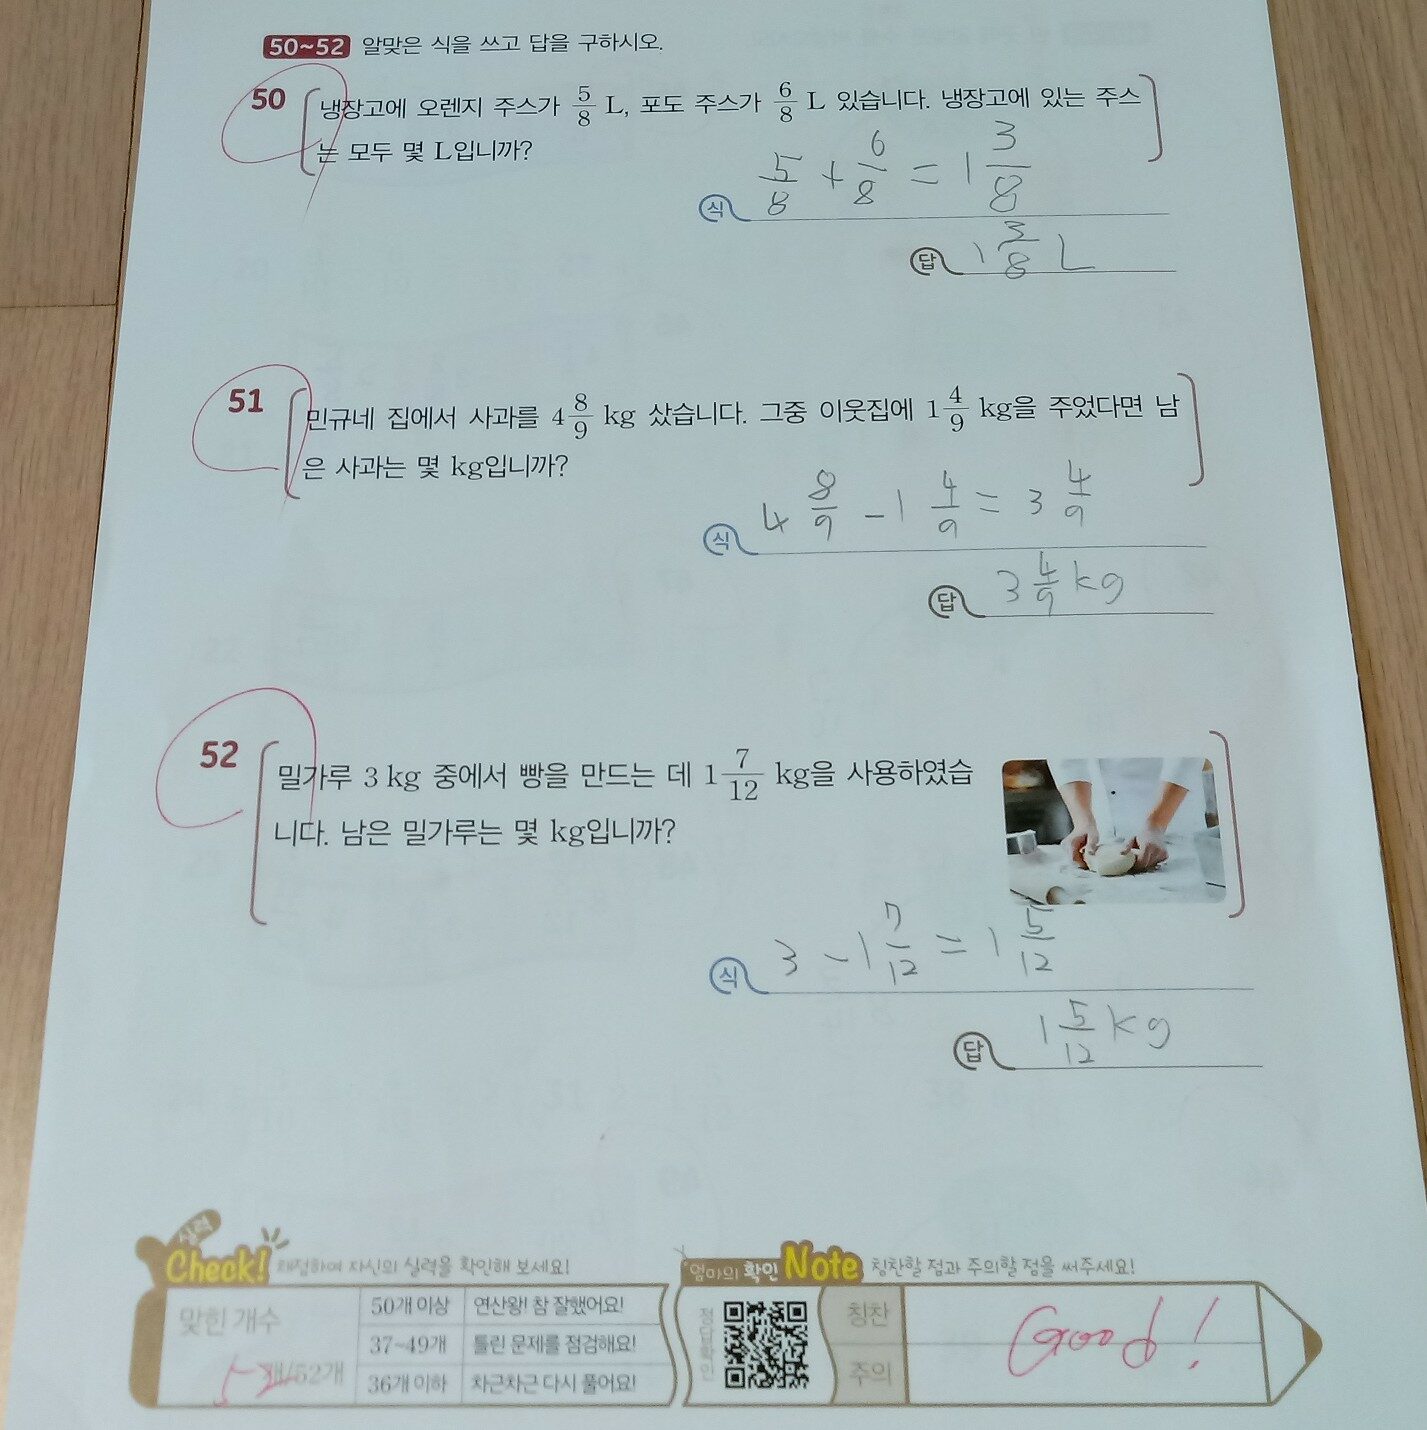 50~52 알맞은 식을 쓰고 답을 구하시오.
50 냉장고에 오렌지 주스가 5/8 L, 포도 주스가 6/8 L 있습니다. 냉장고에 있는 주스
는 모두 몇 L입니까?
식 5/8 + 6/8 = 1 3/8
답 1 3/8 L
51 민규네 집에서 사과를 4 8/9 kg 샀습니다. 그중 이웃집에 1 4/9 kg을 주었다면 남
은 사과는 몇 kg입니까?
식 4 8/9 - 1 4/9 = 3 4/9
답 3 4/9 kg
52 밀가루 3 kg 중에서 빵을 만드는 데 1 7/12 kg을 사용하였습
니다. 남은 밀가루는 몇 kg입니까?
식 3 - 1 7/12 = 1 5/12
답 1 5/12 kg
실력 Check! 채점하여 자신의 실력을 확인해 보세요!
맞힌 개수
52개/52개
50개 이상 연산왕! 참 잘했어요!
37~49개 틀린 문제를 점검해요!
36개 이하 차근차근 다시 풀어요!
엄마의 확인 Note 칭찬할 점과 주의할 점을 써주세요!
정답확인
칭찬
주의
Good!